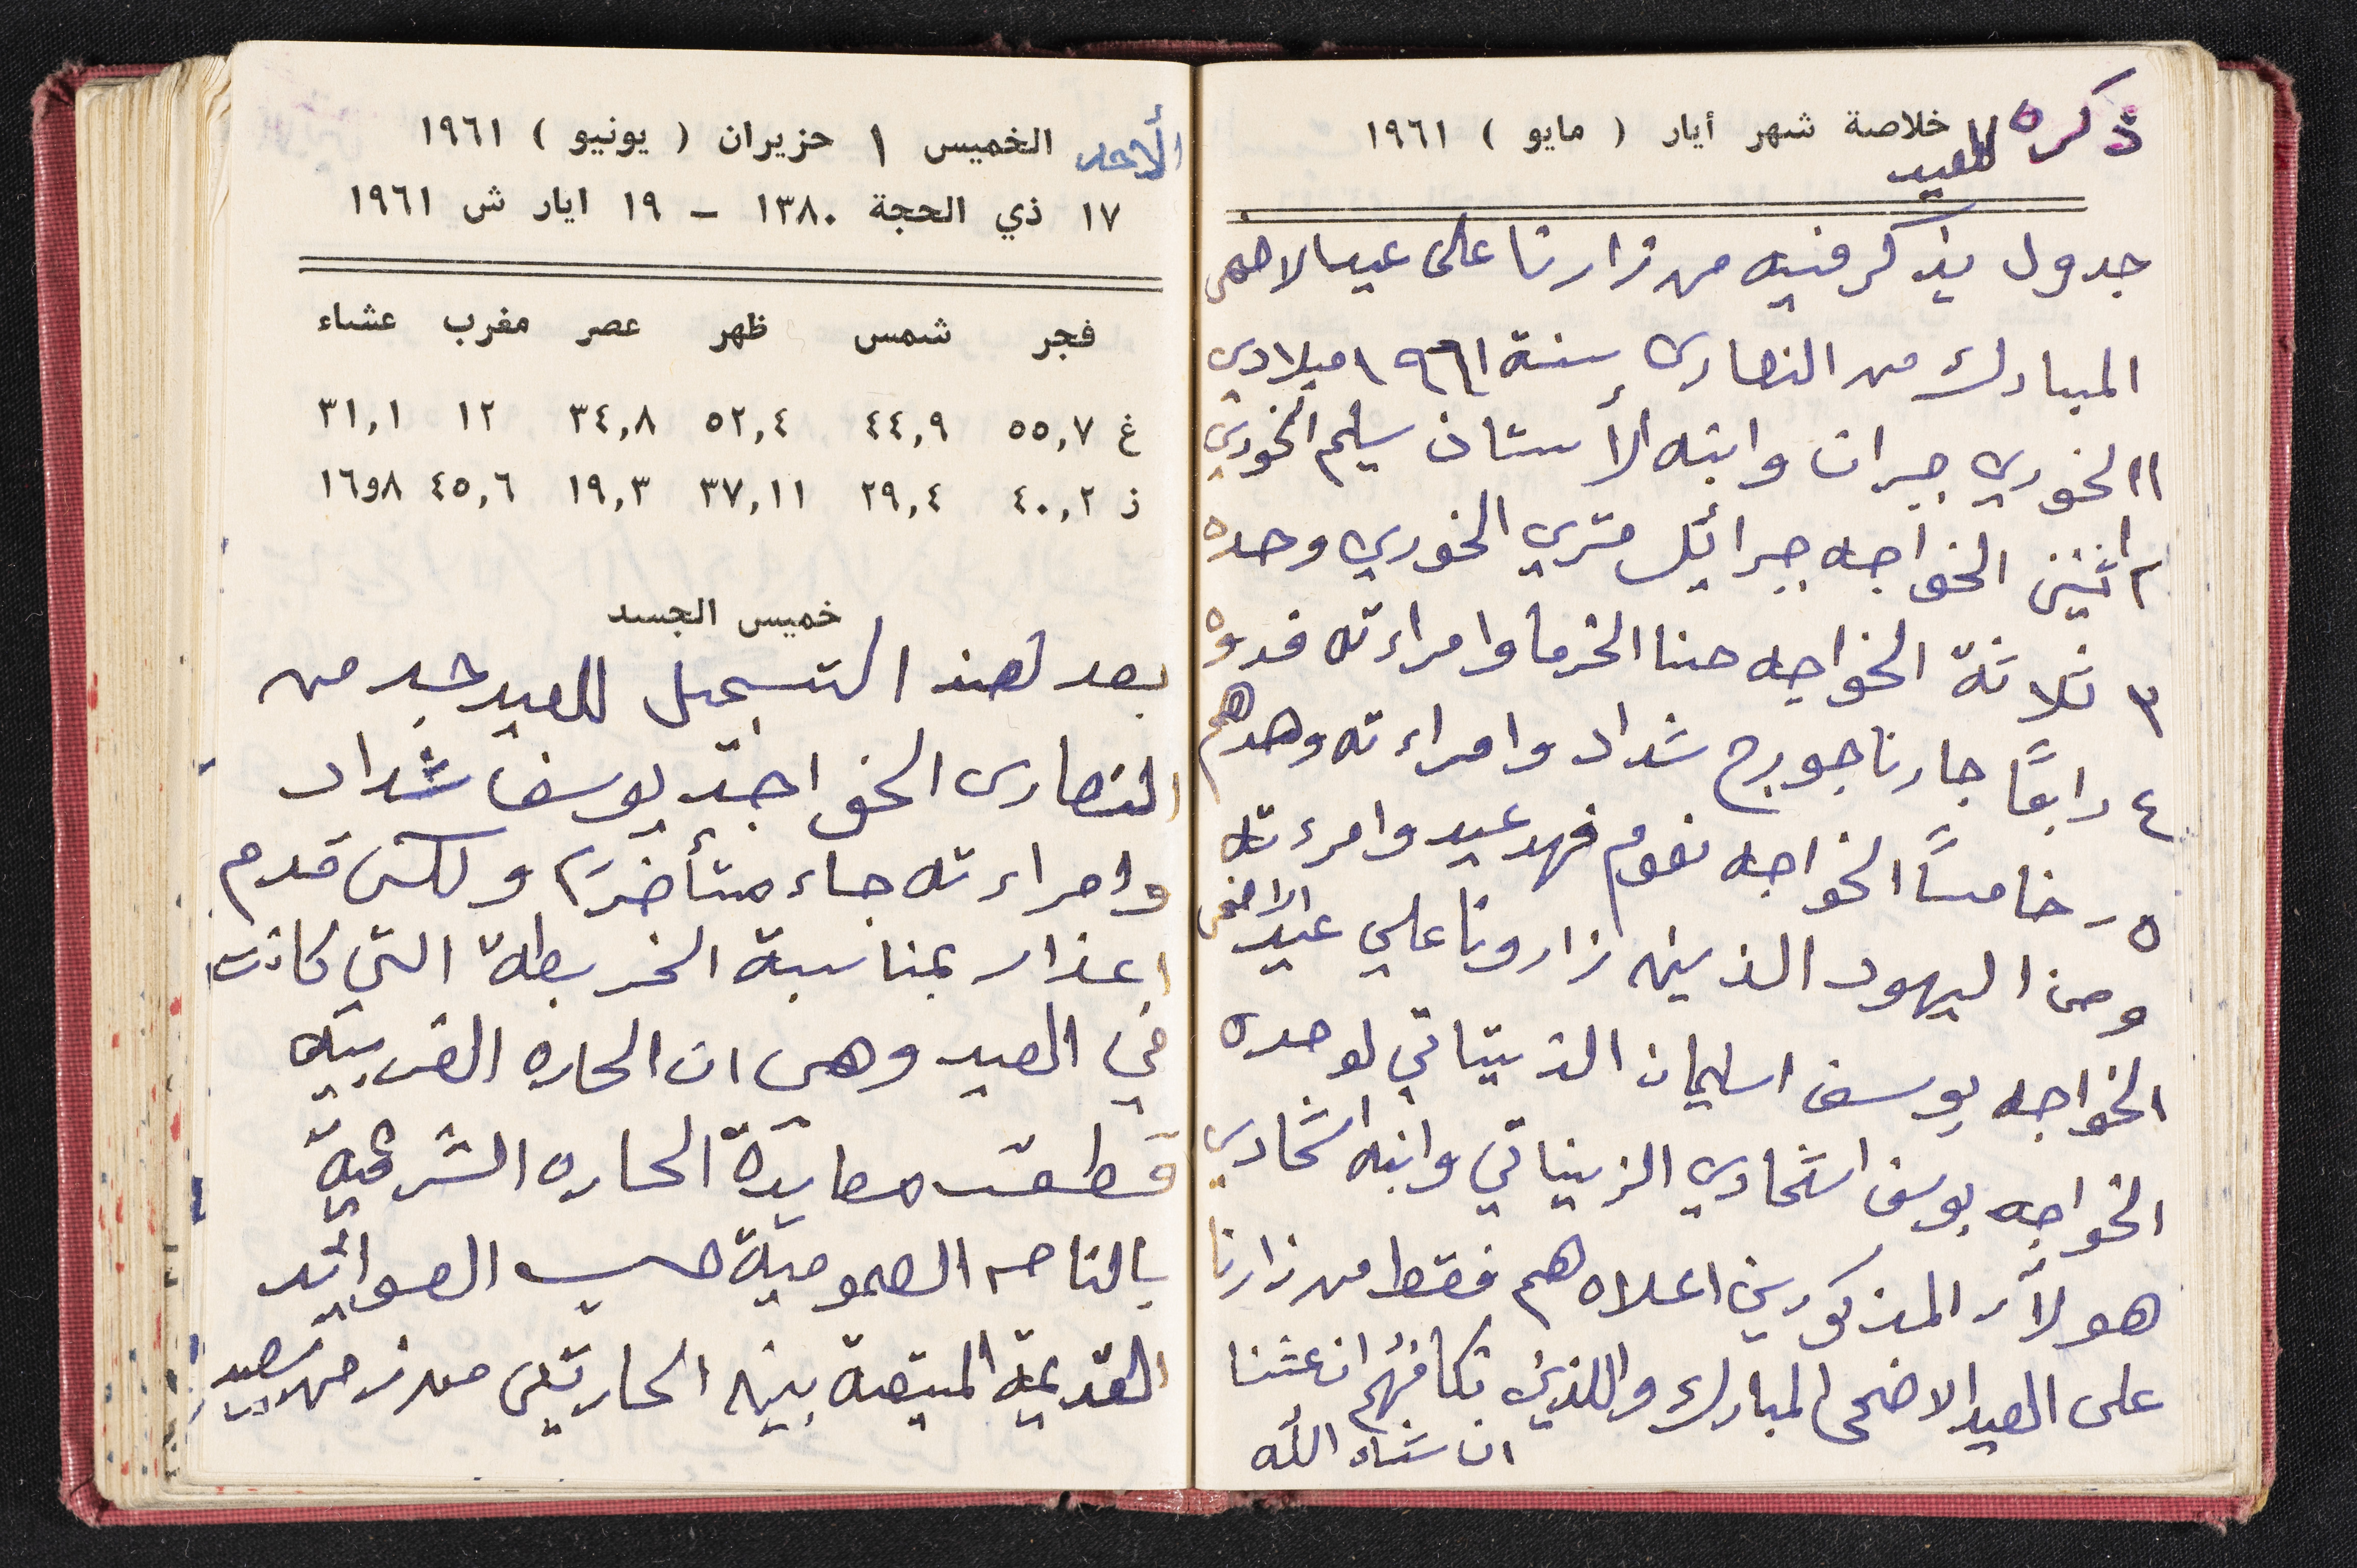 ذكره للعيد
خلاصة شهر أيار ( مايو ) ١٩٦١
جدول يذكر فيه من زارنا على عيد الاضحى
المبارك من النصارى سنة ١٩٦١ ميلادي
١ الخوري جبران وابنه الأستاذ سليم الخوري
٢ اثنين الخواجه جبرائيل متري الخوري وحده
٣ ثلاثة الخواجه حنا الخرما وامراءته فدوه
٤ رابعًا جارنا جورج شداد وامراءته وهدهم
٥ - خامسًا الخواجه نعوم فهد عيد وامرءته
ومن اليهود الذين زارونا علي عيد الاضحى
الخواجه يوسف اسليمان الزيناتي لوحده
الخواجه يوسف اشحادي الزيناتي وابنه اشحادي
هولآر المذكورين اعلاه هم فقط من زارنا
على العيد الاضحى المبارك واللذين نكافئهم انعشنا
ان شاء الله
الأحد
الخميس ١ حزيران ( يونيو ) ١٩٦١
١٧ ذي الحجة ١٣٨٠ - ١٩ ايار ش ١٩٦١
فجر شمس ظهر عصر مغرب عشاء
غ ٥٥,٧ ٤٤,٩ ٥٢,٤ ٣٤,٨ ١٢ ٣١,١
ز ٤٠,٢ ٢٩,٤ ٣٧,١١ ١٩,٣ ٤٥,٦ ٨و١٦
خميس الجسد
بعد لهند التسجيل للعيد جد من
النصارى الخواجة يوسف شداد
وامراءته جاء متأخرًا ولكن قدم
اعذار بمناسبة الخربطة التي كانت
في العيد وهى ان الحاره الغربيه
قطعت معايدة الحاره الشرقية
بالناحه العمومية حسب العوائد
القديمة المتبعة بين الحارتين من زمن بعيد